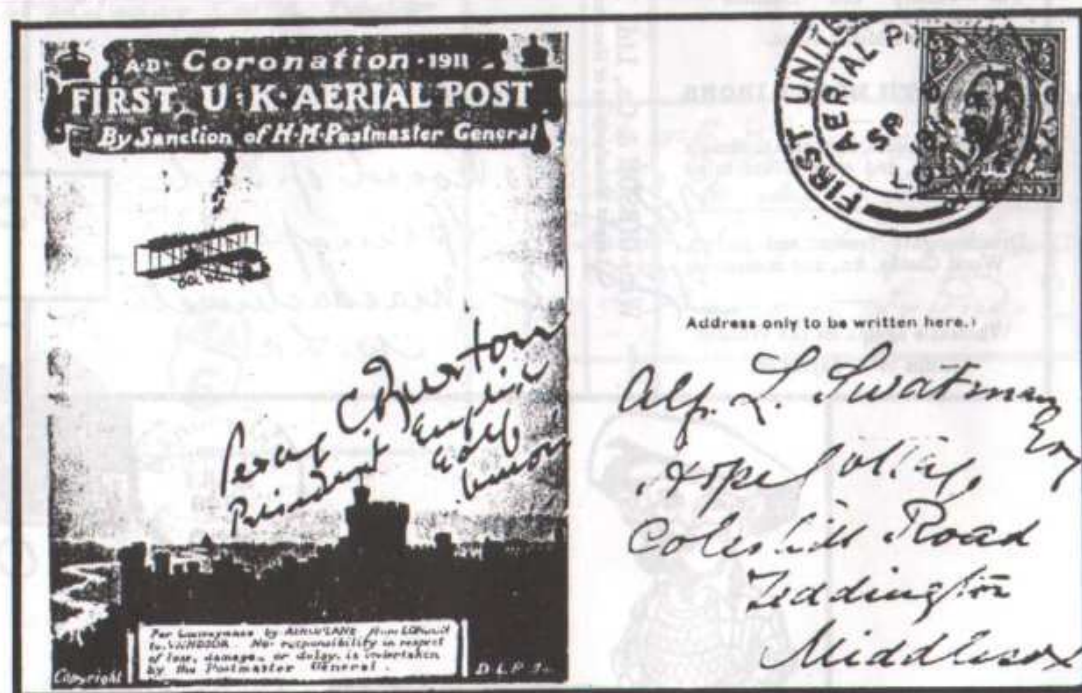 A·D· Coronation · 1911
FIRST U·K· AERIAL POST
By Sanction of H·M·Postmaster General
Percy C. Burton
President English
Golf
Union
For Conveyance by AEROPLANE from LONDON
to WINDSOR. No responsibility in respect
of loss, damage, or delay, is undertaken
by the Postmaster General.
Copyright
D.L.P.
FIRST UNITED
AERIAL POST
SP
1911
LONDON
Address only to be written here.
Alf. L. Swatman
Esq
Hope Cottage
Coleshill Road
Teddington
Middlesex